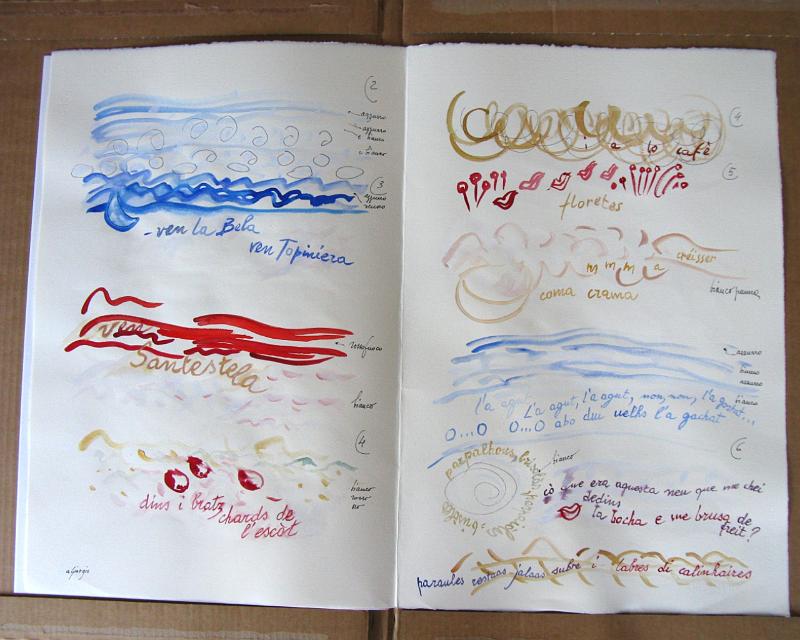 2
azzurro
azzurro
e bianco
e bianco
3
azzurro
- ven la Bela
ven Topiniera
ven
rossofuoco
Santestela
bianco
4
bianco
rosso
dins i bratz
chards de
l'escòt
4
i a lo cafè
5
floretas
créisser
m m m a
coma crama
biancopanna
azzurro
bianco
azzurro
bianco
l'a agut
l'a agut, l'a agut, non, non, l'a gachat...
O...O O...O abo dui uelhs l'a gachat
6
parpalhons,
bianco
cò que era aquesta neu que me chei
dedins
la bocha e me brusa de
freit?
paraules restaas jalaas subre i labres di calinhaires